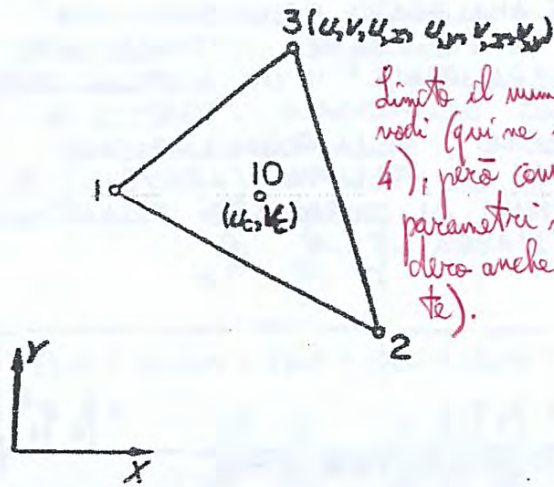 3 (u, v, u,x, u,y, v,x, v,y)
Limito il num
nodi (qui ne
4), però com
parametri
dero anche
te).
1
10
(uc, vc)
2
Y
X